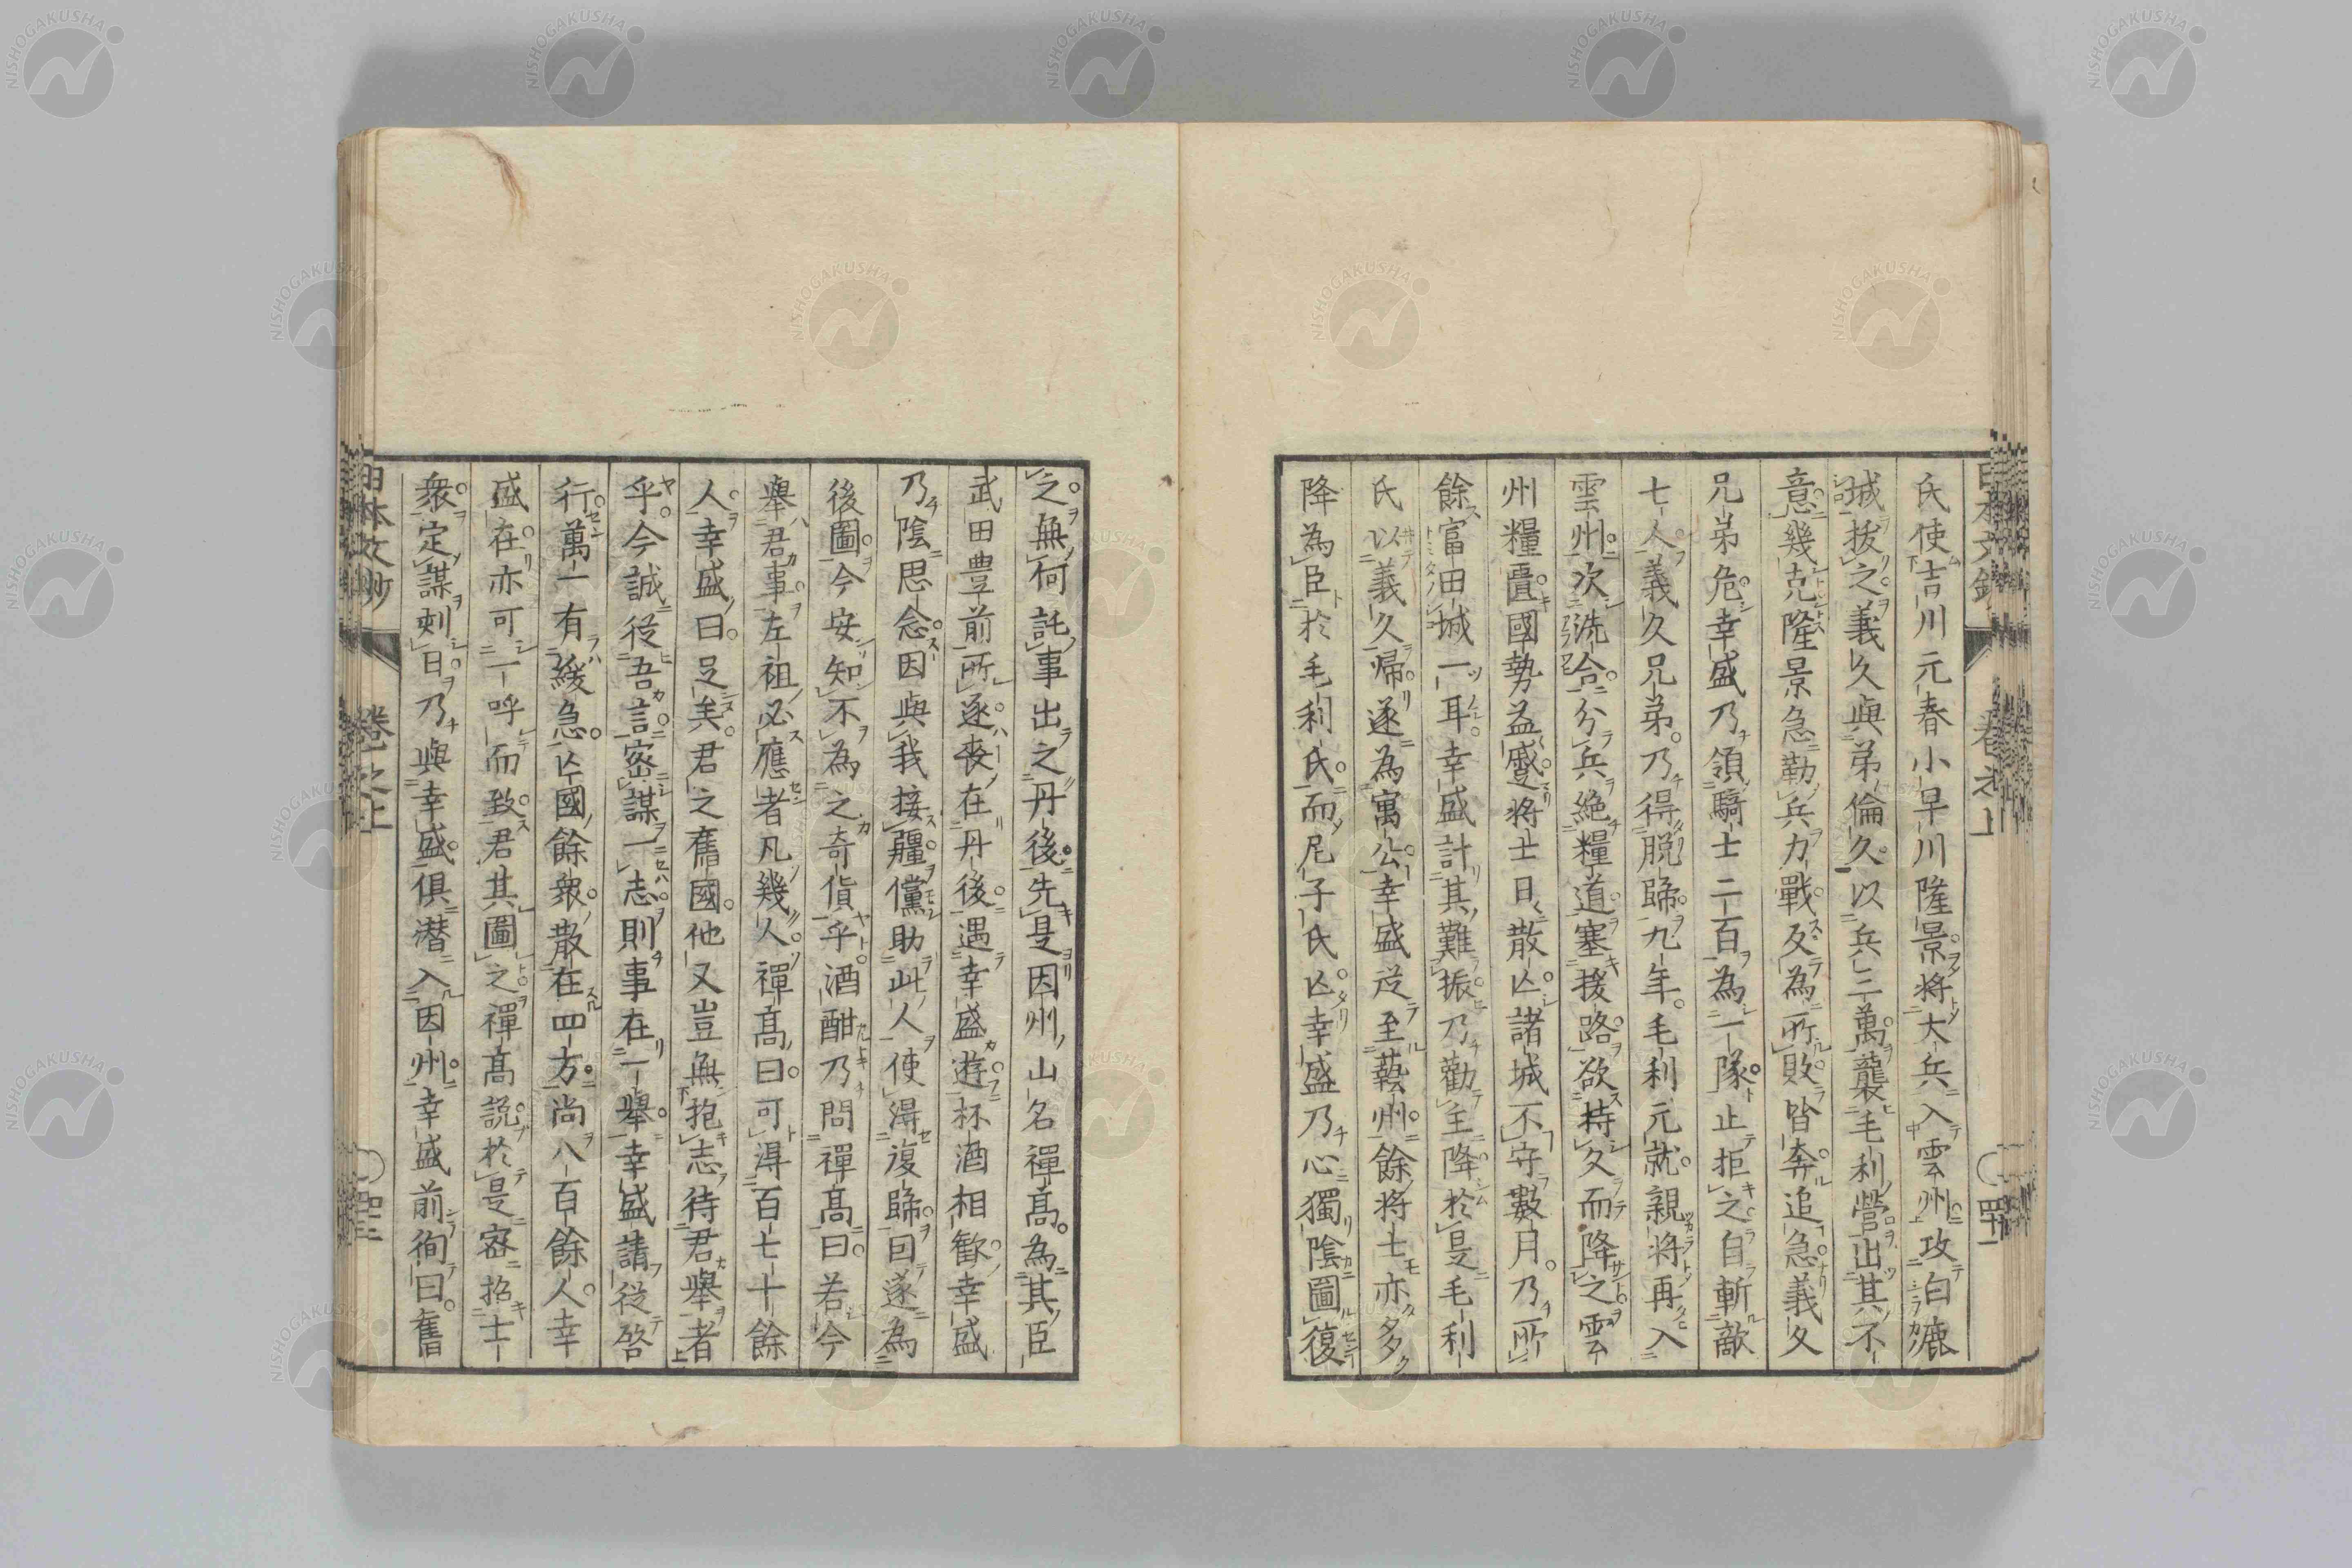 氏使吉川元春小早川隆景將大兵入雲州攻白鹿
城拔之義久與弟倫久以兵三萬襲毛利營出其不
意幾克隆景急勒兵力戰反為所敗皆奔追急義久
兄弟危幸盛乃領騎士二百為一隊止拒之自斬敵
七人義久兄弟乃得脫歸九年毛利元就親將再入
雲州次洗合分兵絕糧道塞援路欲持久而降之雲
州糧匱國勢益蹙將士日散亡諸城不守數月乃所
餘富田城一耳幸盛計其難振乃勸主降於是毛利
氏以義久歸遂為寓公幸盛從至藝州餘將士亦多
降為臣於毛利氏而尼子氏亡幸盛乃心獨陰圖復
之無何託事出之丹後先是因州山名禪高為其臣
武田豊前所逐喪在丹後遇幸盛遊杯酒相歡幸盛
乃陰思念因與我接疆儻助此人使得復歸回遂為
後圖今安知不為之奇貨乎酒酣乃問禪高曰若今
舉君事左祖必應者凡幾人禪高曰可得百七十餘
人幸盛曰足矣君之舊國他又豈無抱志待君舉者
乎今誠從吾言密謀一志則事在一舉幸盛請從啓
行萬一有緩急亡國餘衆散在四方尚八百餘人幸
盛在亦可一呼而致君其圖之禪高說於是密招士
衆定謀刻日乃與幸盛俱潛入因州幸盛前徇曰舊
卷之上